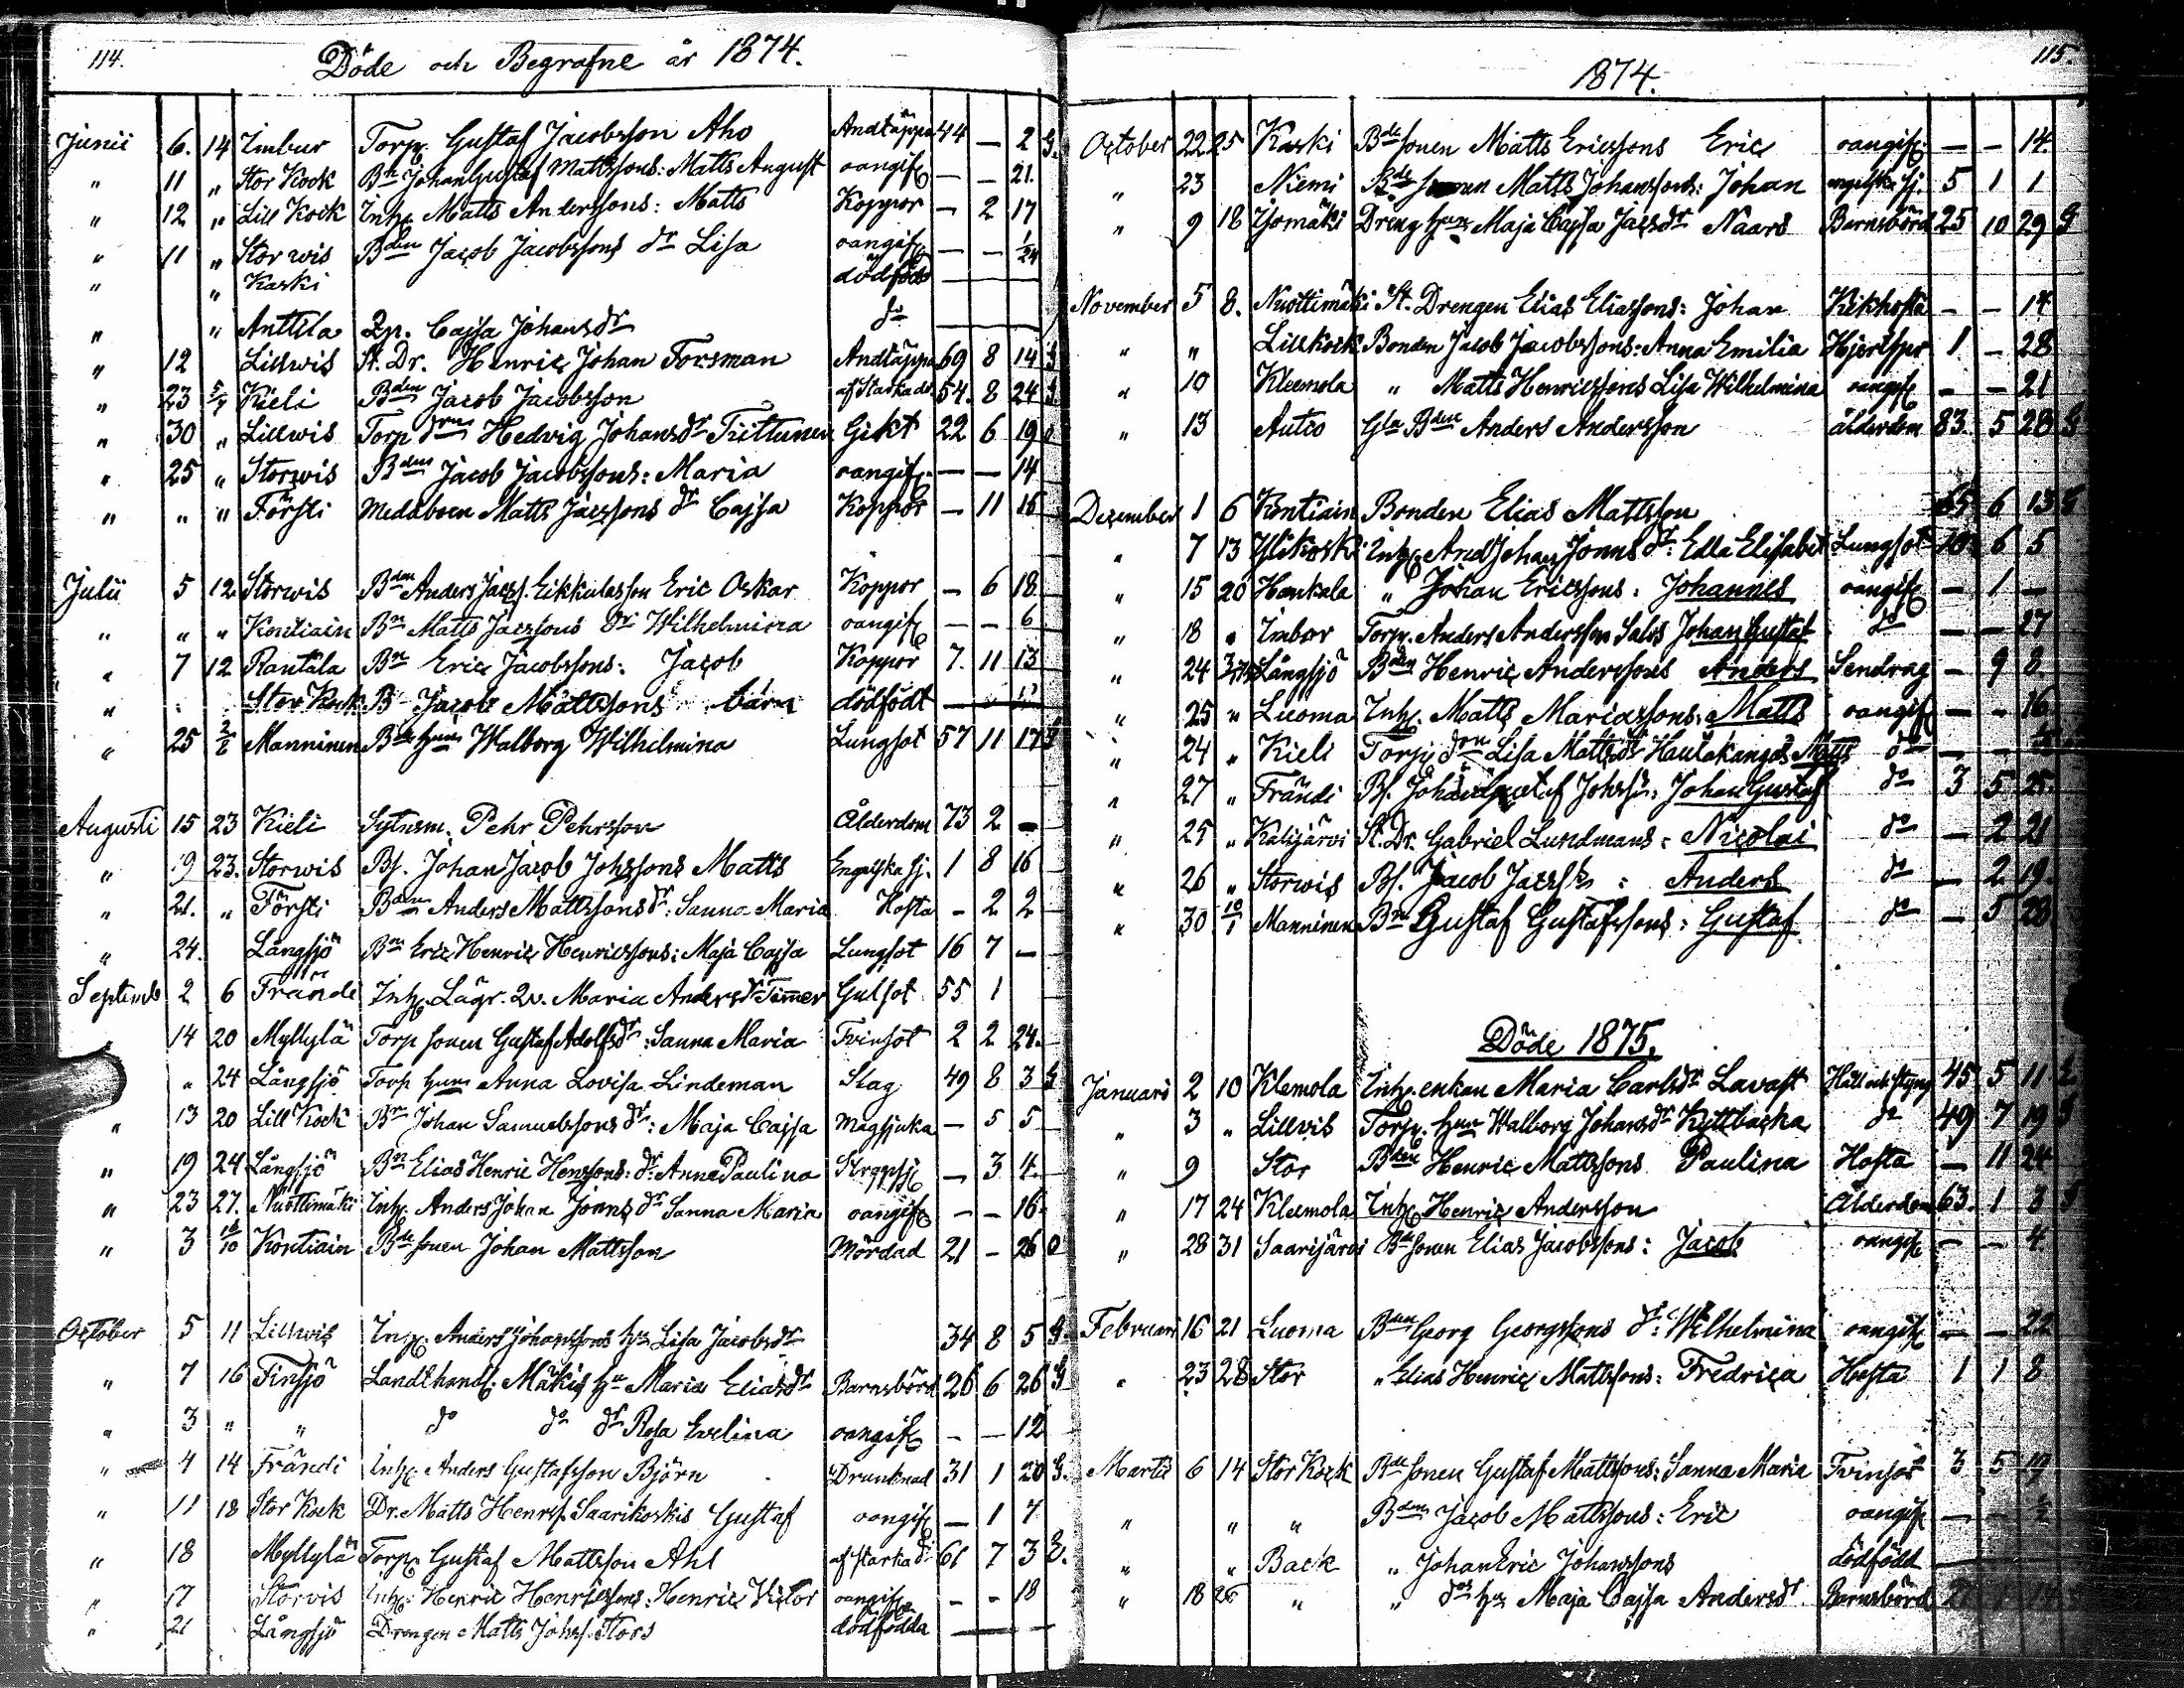 114.
Döde och Begrafne år 1874.
Junii 6. 14 Imbur Torp. Gustaf Jacobsson Aho Andtäppa 44 — 2 G.
" 11 " Stor Kock Bn Johan Gustaf Mattssons: Matts August oangif — — 21.
" 12 " Lill Kock Inh. Matts Anderssons: Matts Koppor — 2 17
" 11 " Storwis Bden Jacob Jacobssons dr Lisa oangif — — 1/24
" " Kaski dödfödt —
" " Anttila Qp. Cajsa Johansdr do —
" 12 Lillwis St. Dr. Henric Johan Forsman Andtäppa 69 8 14 G
" 23 5/7 Kieli Bden Jacob Jacobsson af Starka dr. 54. 8 24 G.
" 30 " Lillwis Torp drn Hedvig Johansdr Tiittunen Gikt 22 6 19 o
" 25 " Storwis Bdens Jacob Jacobssons: Maria oangif. — — 14
" " " Försti Medaboen Matts Jacssons dr Cajsa Koppor — 11 16
Julii 5 12. Storwis Bden Anders Jacss. Eikkulasson Eric Oskar Koppor — 6 18
" " " Kontiain Bn Matts Jacssons dr Wilhelmina oangif — — 6
" 7 12 Rantala Bn Eric Jacobssons: Jacob Koppor 7. 11 13
" Stor Kock Bn Jacob Mattssons barn dödfödt — — —
" 25 2/8 Manninen Bde hun Walborg Wilhelmina Lungsot 57 11 17 G
Augusti 15 23 Kieli Sytnsm. Pehr Pehrsson Ålderdom 73 2 —
" 19 23. Storwis Bs. Johan Jacob Johssons Matts Engelska sj. 1 8 16
" 21. " Försti Bdens Anders Mattssons dr: Sanna Maria Hosta — 2 2
" 24. Långsjö Bns Eric Henric Henricssons: Maja Cajsa Lungsot 16 7 —
Septemb 2 6 Frändi Inh. Lägr. Qv. Maria Andersdr Timmer Gulsot 55 1
" 14 20 Myllylä Torp sonen Gustaf Adolfs dr: Sanna Maria Tvinsot 2 2 24.
" " 24 Långsjö Torp hun Anna Lovisa Lindeman Slag 49 8 3 G
" 13 20 Lill Kock Bn Johan Samuelssons dr: Maja Cajsa Magsjuka — 5 5
" 19 24 Långsjö Bn Elias Henric Henrssons: dr Anna Paulina Strypsj — 3 4.
" 23 27. Nuottimäki Inh. Anders Johan Jonns dr Sanna Maria oangif — — 16.
" 3 /10 Kontiain Bde sonen Johan Mattsson Mördad 21 — 26 O
October 5 11 Lillwis Inh. Anders Johanssons hu Lisa Jacobsdr 34 8 5 G.
" 7 16 Finsjö Landthandl. Mäkis hu Maria Eliasdr Barnsbörd 26 6 26 G
" 3 " " do do dr Rosa Evelina oangif — — 12
" 4 14 Frändi Inh. Anders Gustafsson Björn Drunknad 31 1 20 G.
" 11 18 Stor Kock Dr. Matts Henrss. Saarikoskis Gustaf oangif — 1 7
" 18 Myllylä Torp. Gustaf Mattsson Ahl af starka dr 61 7 3 E.
" 17 Storvis Inh. Henric Henricssons: Henric Victor oangif — — 18
" 21 Långsjö Drengen Matts Johss. Stors dödfödda —
115.
1874.
October 22 25 Kaski Bde sonen Matts Ericssons Eric oangif. — — 14.
" 23 Niemi Bde sonen Matts Johanssons: Johan engelska sj. 5 1 1
" 9 18 Djomäki Dreng hun Maja Cajsa Jacsdr Naars Barnsbörd 25 10 29 G
November 5 8. Nuottimäki St. Drengen Elias Eliassons: Johan Kikhosta — — 14
" " Lillkock Bonden Jacob Jacobssons: Anna Emilia Hjertspr 1 — 28
" 10 Kleemola " Matts Henricssons Lisa Wilhelmina oangif — — 21
" 13 Autio Gla Bden Anders Andersson ålderdom 83. 5 28 G
December 1 6 Kontiain Bonden Elias Mattsson 65 6 13 G
" 7 13 Ylikoski Inh. And Johan Jonns dr: Edla Elisabet Lungsot 10 6 5
" 15 20 Hankala " Johan Ericssons: Johannes oangif — 1 —
" 18 " Imbor Torp. Anders Andersson Salos Johan Gustaf do — — 27
" 24 Långsjö Bden Henric Anderssons Anders Sendrag — 9 8.
" 25 " Luoma Inh. Matts Mariassons: Matts oangif — — 16.
" 24 " Kieli Torp drn Lisa Mattsdr Hautakangas Matts do — —
" 27 " Frändi Bs. Johan Gustaf Johss: Johan Gustaf do 3 5 25.
" 25 " Kalijärvi St. Dr. Gabriel Lundmans: Nicolai do — 2 21
" 26 " Storwis Bs. Jacob Jacss: Anders do — 2 19.
" 30 10/1 Manninen Bns Gustaf Gustafssons: Gustaf do — 5 28
Döde 1875.
Januari 2 10 Klemola Inh. enkan Maria Carlsdr Lavast Håll och Styng 45 5 11 E.
" 3 " Lillvis Torp. hun Walborg Johansdr Kyttbacka do 49 7 19 G
" 9 Stor Bden Henric Mattssons Paulina Hosta — 11 24
" 17 24 Kleemola Inh. Henric Andersson Ålderdom 63. 1 3 G
" 28 31 Saarijärvi Bde sonen Elias Jacobssons: Jacob oangif — — 4.
Februari 16 21 Luoma Bden Georg Georgssons dr: Wilhelmina oangif — — 22
" 23 28 Stor " Elias Henric Mattssons: Fredrica Hosta 1 1 8
Martii 6 14 Stor Kock Bde sonen Gustaf Mattssons: Sanna Maria Tvinsot 3 5 19
" " " Bdens Jacob Mattssons: Eric oangif — — 1/2
" " Back " Johan Eric Johanssons dödfödd —
" 18 26 " " dos hu Maja Cajsa Andersdr Barnsbörd